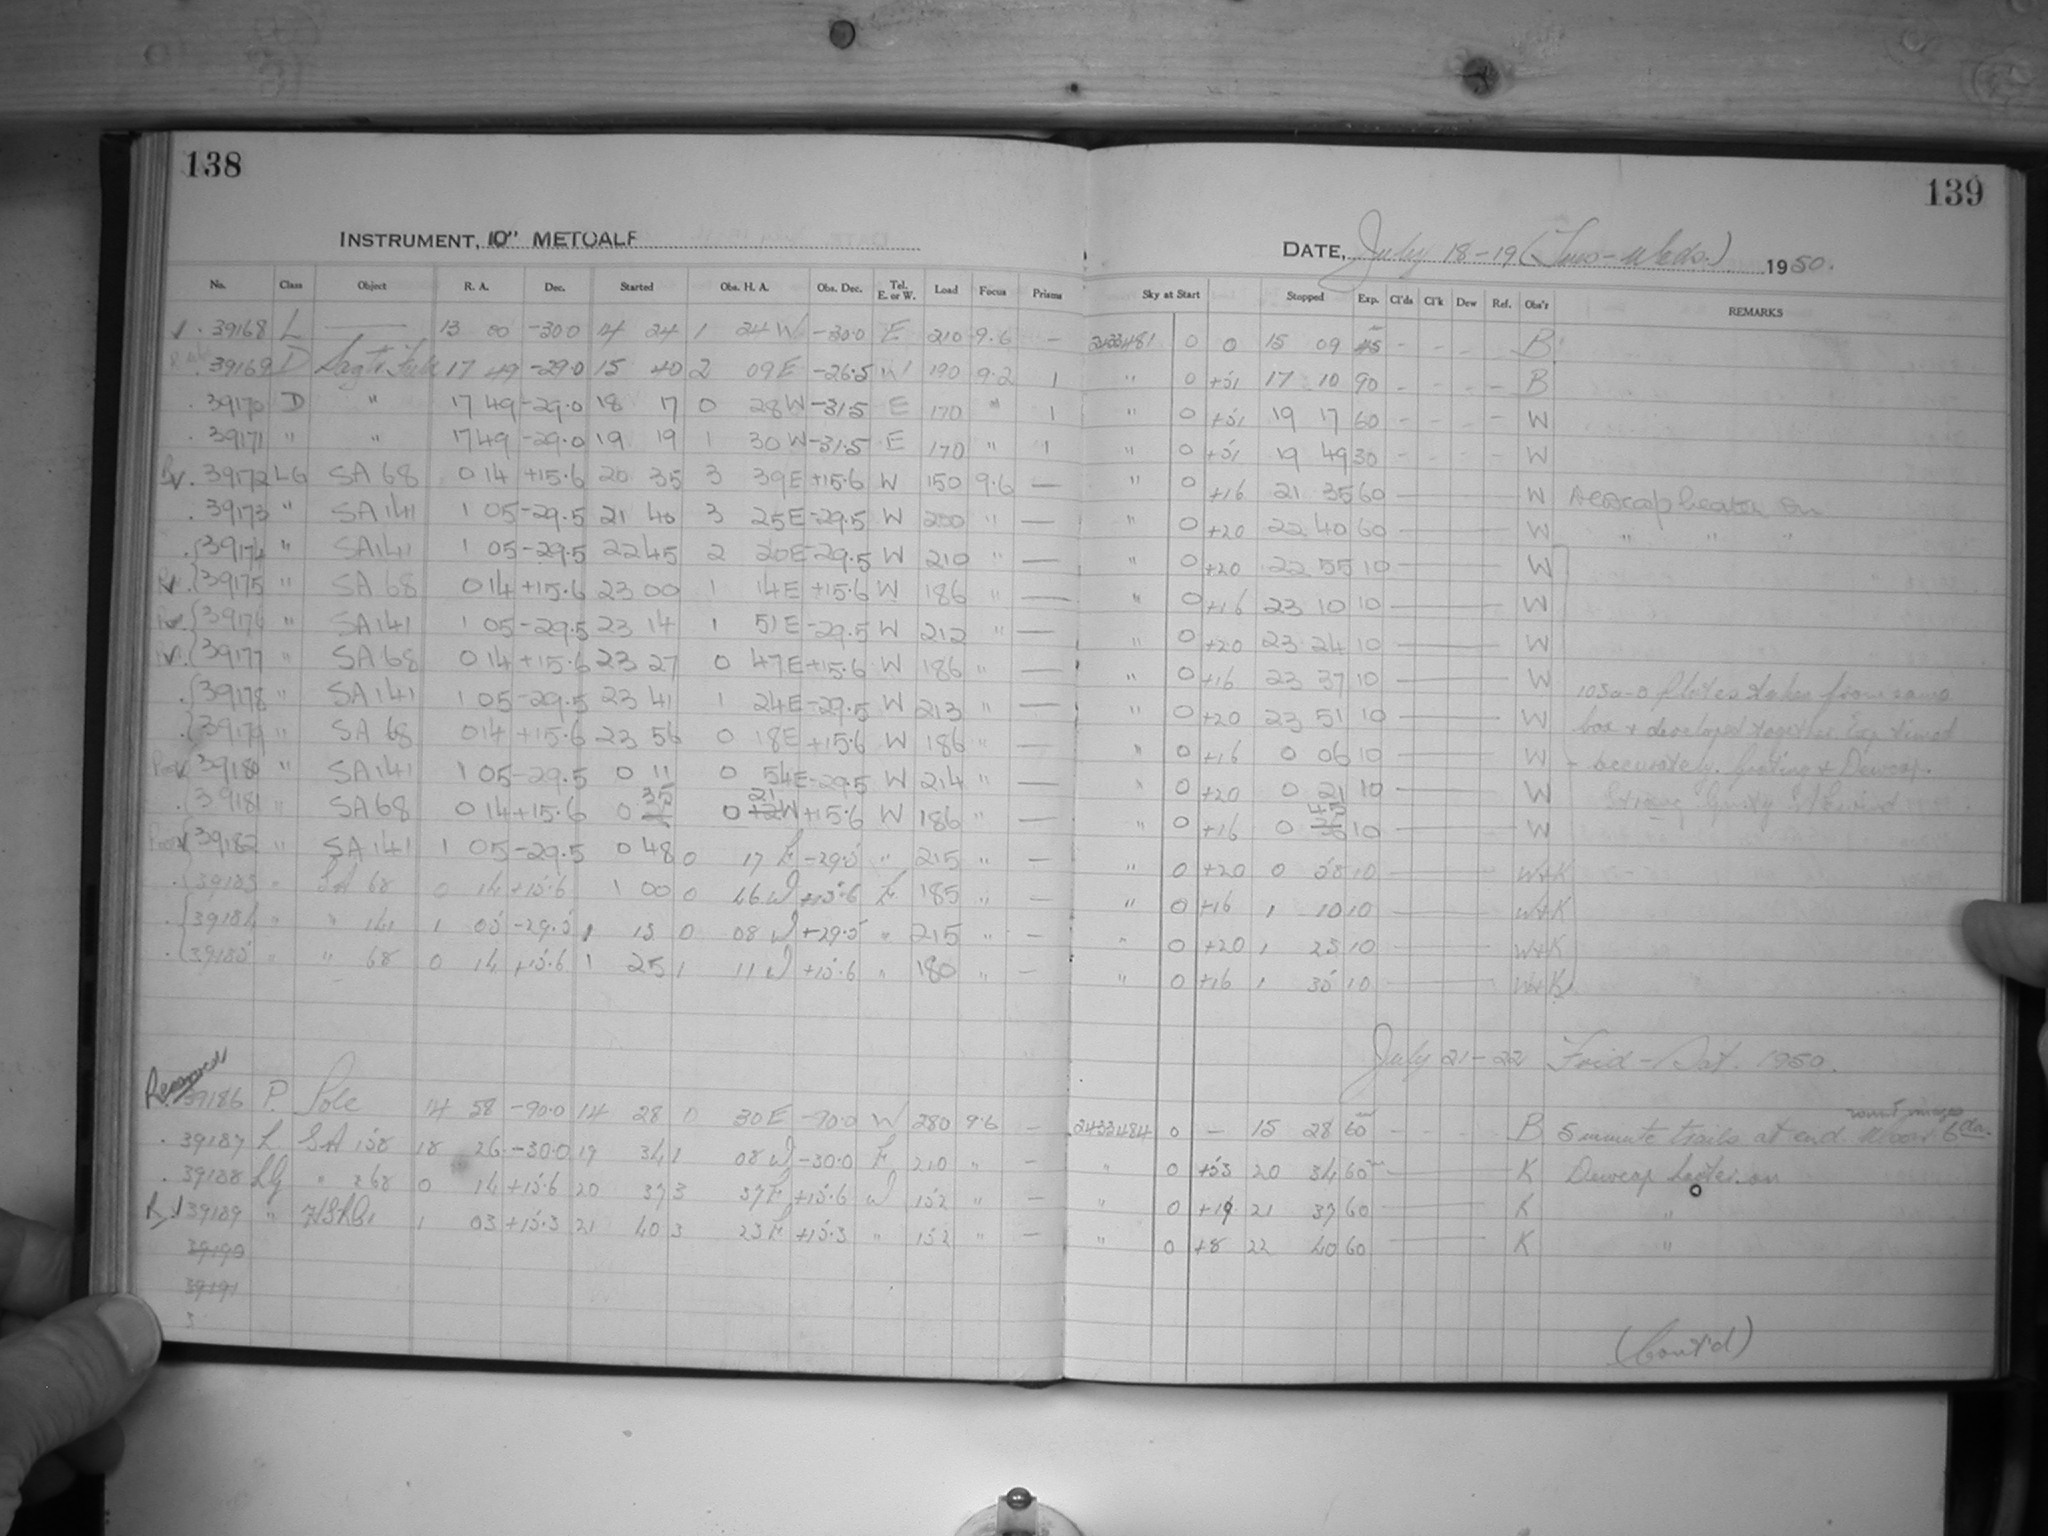 138
139
INSTRUMENT, 10" METCALF
DATE, July 18-19 (Tues-Weds.) 1950.
No. Class Object R. A. Dec. Started Obs. H. A. Obs. Dec. Tel. E. or W. Load Focus Prisms Sky at Start Stopped Exp. Cl'ds Cl'k Dew Ref. Obs'r REMARKS
39168 L — 13 00 -30.0 14 24 1 24 W -30.0 E 210 9.6 — 2433481 0 0 15 09 45 - - - - B
39169 D 17 49 -29.0 15 40 2 09 E -26.5 W 190 9.2 1 " 0 +31 17 10 90 - - - - B
39170 D " 17 49 -29.0 18 17 0 28 W -31.5 E 170 " 1 " 0 +31 19 17 60 - - - - W
39171 " " 17 49 -29.0 19 19 1 30 W -31.5 E 170 " 1 " 0 +31 19 49 30 - - - - W
39172 LG SA 68 0 14 +15.6 20 35 3 39 E +15.6 W 150 9.6 — " 0 +16 21 35 60 — W Dewcap heater on
39173 " SA 141 1 05 -29.5 21 40 3 25 E -29.5 W 200 " — " 0 +20 22 40 60 — W " " "
39174 " SA 141 1 05 -29.5 22 45 2 20 E -29.5 W 210 " — " 0 +20 22 55 10 — W
39175 " SA 68 0 14 +15.6 23 00 1 14 E +15.6 W 186 " — " 0 +16 23 10 10 — W
39176 " SA 141 1 05 -29.5 23 14 1 51 E -29.5 W 212 " — " 0 +20 23 24 10 — W
39177 " SA 68 0 14 +15.6 23 27 0 47 E +15.6 W 186 " — " 0 +16 23 37 10 — W 103a-O plates taken from same
39178 " SA 141 1 05 -29.5 23 41 1 24 E -29.5 W 213 " — " 0 +20 23 51 10 — W box + developed together Exp timed
39179 " SA 68 0 14 +15.6 23 56 0 18 E +15.6 W 186 " — " 0 +16 0 06 10 — W accurately. Grating + Dewcap.
39180 " SA 141 1 05 -29.5 0 11 0 54 E -29.5 W 214 " — " 0 +20 0 21 10 — W Strong Gusty
39181 " SA 68 0 14 +15.6 0 35 0 21 W +15.6 W 186 " — " 0 +16 0 45 10 — W
39182 " SA 141 1 05 -29.5 0 48 0 17 E -29.5 " 215 " — " 0 +20 0 58 10 — W+K
39183 " SA 68 0 14 +15.6 1 00 0 46 W +15.6 E 185 " — " 0 +16 1 10 10 — W+K
39184 " " 141 1 05 -29.5 1 15 0 08 W +29.5 " 215 " — " 0 +20 1 25 10 — W+K
39185 " " 68 0 14 +15.6 1 25 1 11 W +15.6 " 180 " — " 0 +16 1 35 10 — W+K
July 21-22 Frid-Sat. 1950.
39186 P. Pole 14 58 -90.0 14 28 0 30 E -90.0 W 280 9.6 — 2433484 0 — 15 28 60 - - - - B 5 minute trails at end.
39187 L SA 158 18 26 -30.0 19 34 1 08 W -30.0 E 210 " — " 0 +33 20 34 60 — K Dewcap heater on
39188 LG " 68 0 14 +15.6 20 37 3 37 E +15.6 W 152 " — " 0 21 37 60 — K "
39189 " 1 03 +15.3 21 40 3 23 E +15.3 " 152 " — " 0 +8 22 40 60 — K "
39190
39191
(Cont'd)